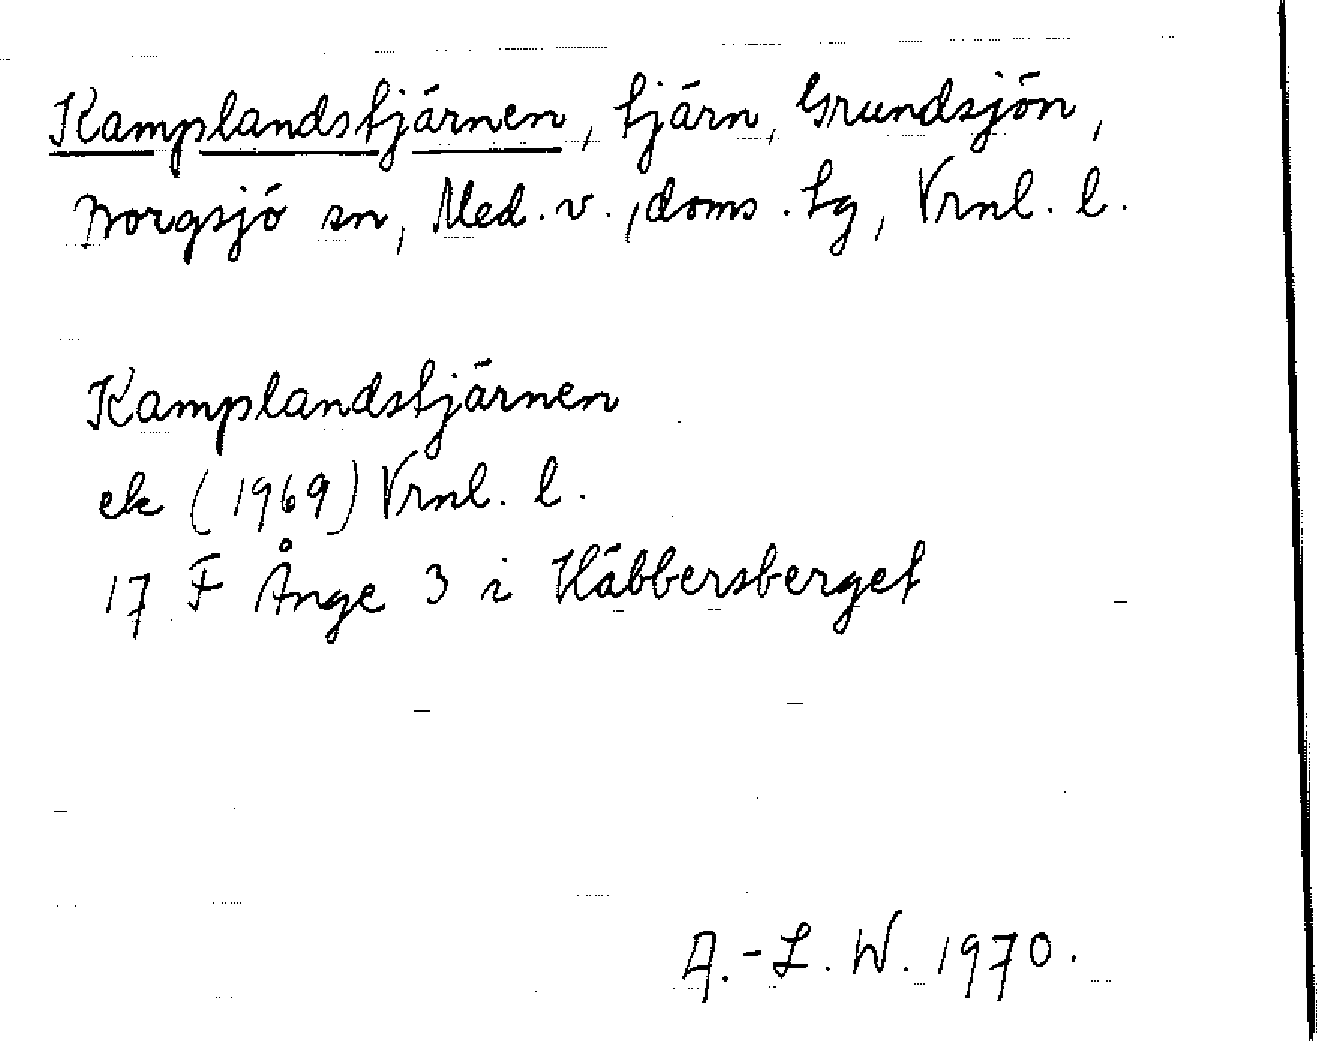 Kamplandstjärnen, tjärn, Grundsjön,
Borgsjö sn, Med. v., doms. tg, Vrnl. l.
Kamplandstjärnen
ek (1969) Vrnl. l.
17 F Ånge 3 i Häbbersberget
A.-L. W. 1970.